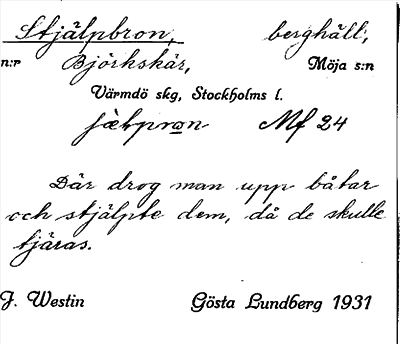 Stjälpbron, berghäll;
n:r Björkskär, Möja s:n
Värmdö skg, Stockholms l.
Mf 24
Där drog man upp båtar
och stjälpte dem, då de skulle
tjäras.
J. Westin Gösta Lundberg 1931